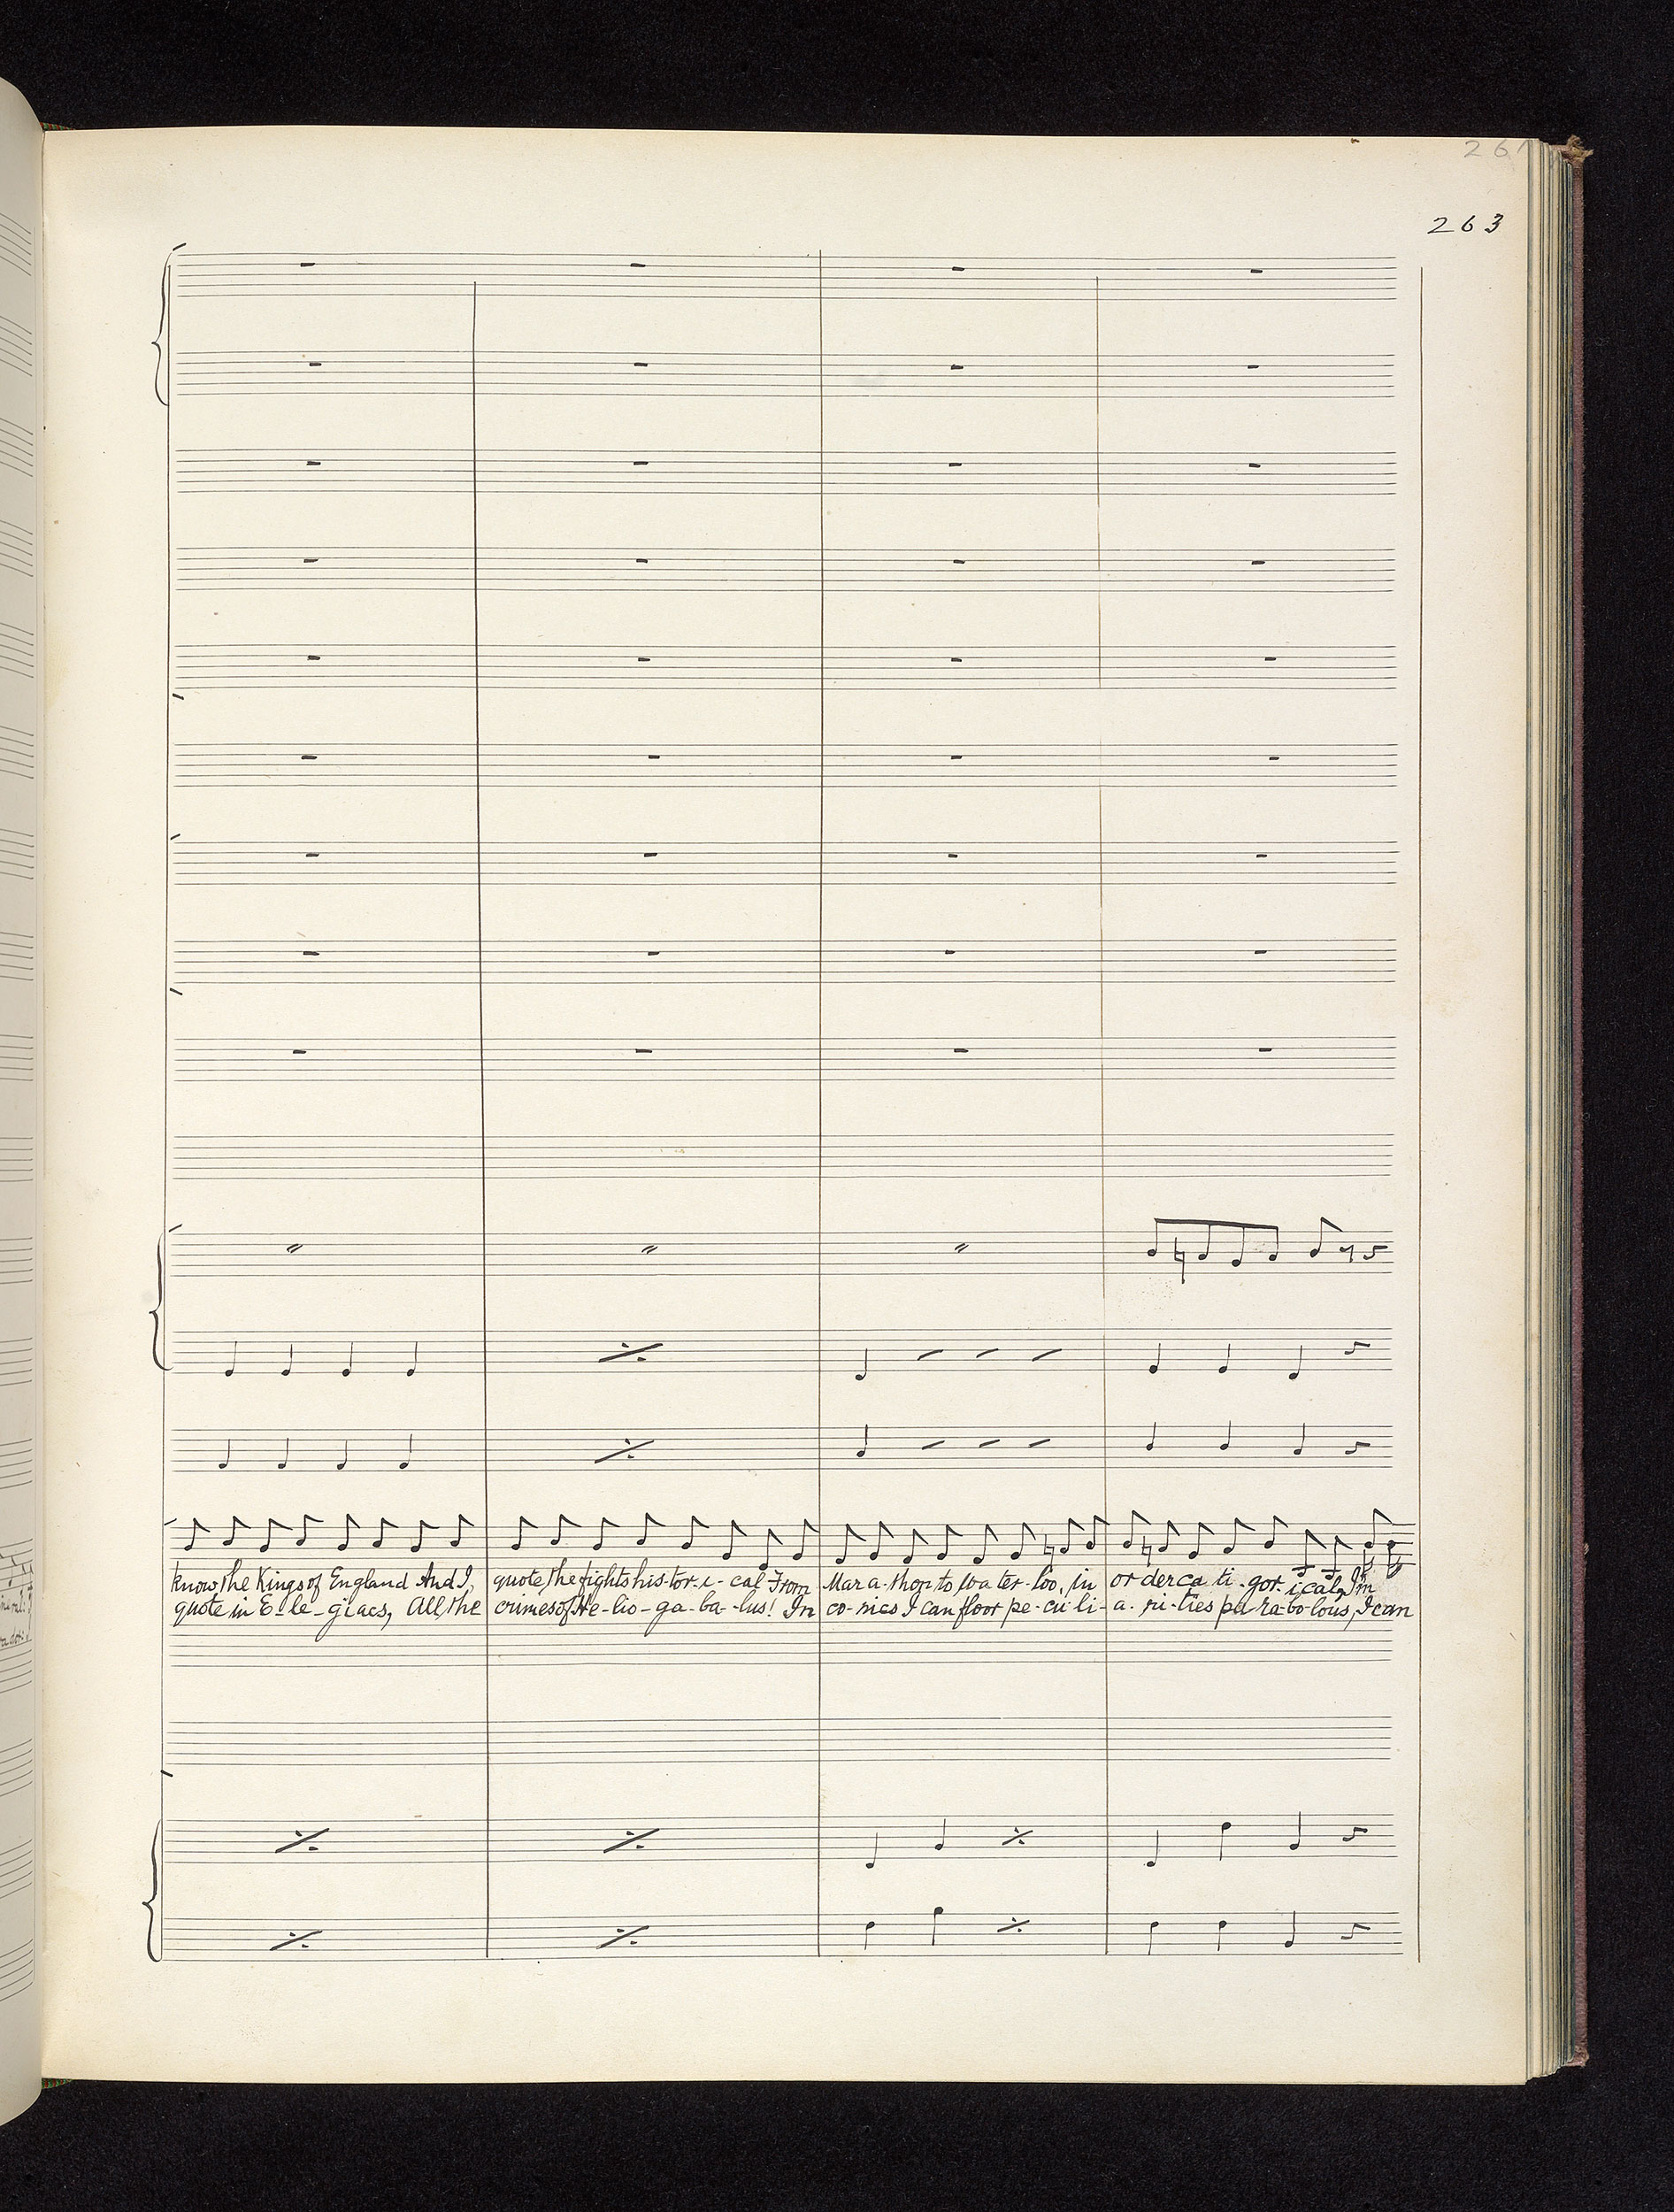 261
263
know the Kings of England And I, quote the fights his-tor-i-cal From Mar a-thon to Wa ter-loo, in or der ca ti-gor-i cal, I'm
quote in E-le-giacs, All the crimes of He-lio-ga-ba-lus! In co-nics I can floor pe-cu-li-a-ri-ties pa ra-bo-lous, I can